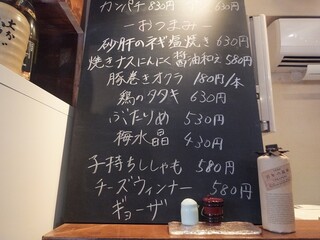 カンパチ 830円 630円
－おつまみ－
砂肝のネギ塩焼き 630円
焼きナスにんにく醤油和え 580円
豚巻きオクラ 180円/本
鶏のタタキ 630円
ぶたりめ 530円
梅水晶 430円
子持ちししゃも 580円
チーズウィンナー 580円
ギョーザ